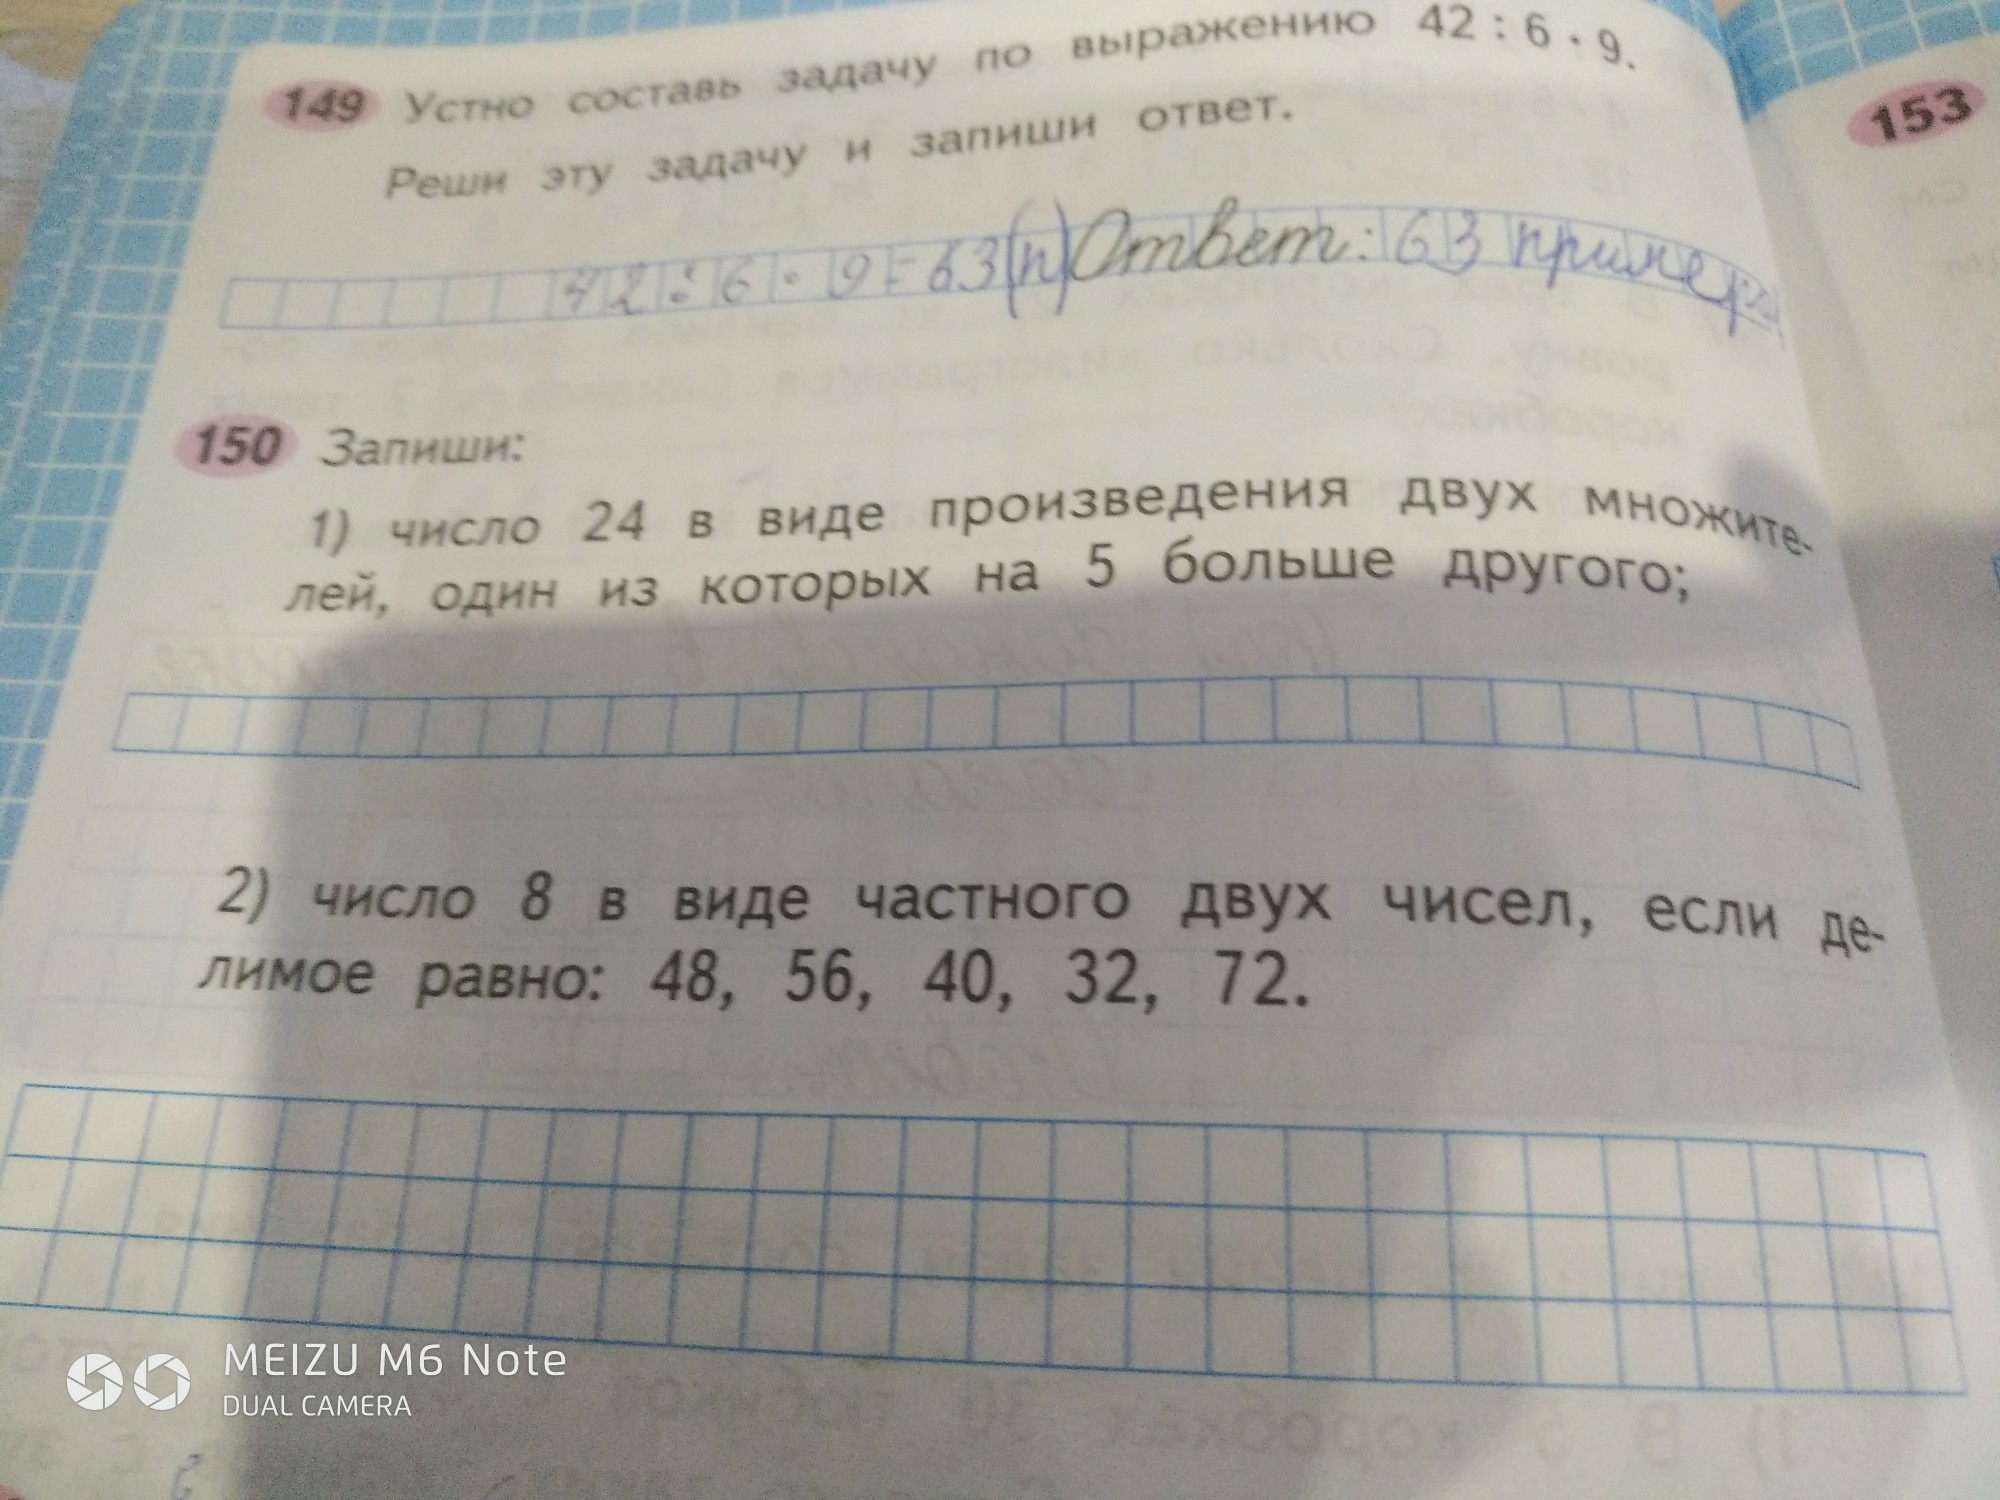 149 Устно составь задачу по выражению 42 : 6 · 9.
Реши эту задачу и запиши ответ.
42 : 6 · 9 = 63 (п) Ответ: 63
150 Запиши:
1) число 24 в виде произведения двух множите-
лей, один из которых на 5 больше другого;
2) число 8 в виде частного двух чисел, если де-
лимое равно: 48, 56, 40, 32, 72.
153
MEIZU M6 Note
DUAL CAMERA